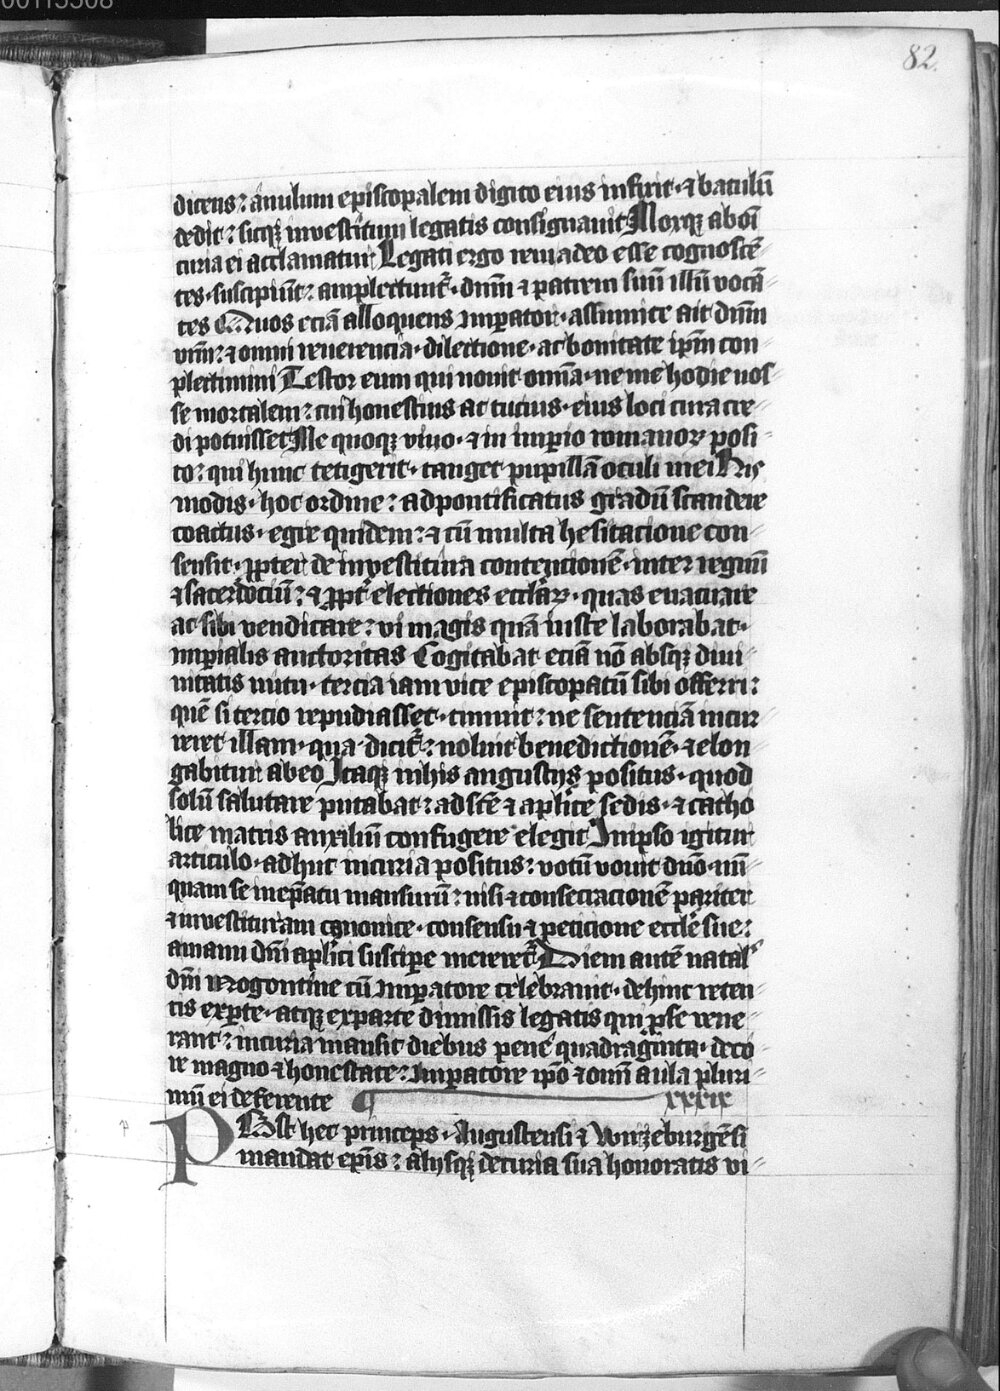 00113308
82.
dicens: anulum episcopalem digito eius insu͛it· ⁊ baculū
dedit: sicq; inuestitum legatis consignauit Morq; ab oı̄
curia ei acclamatur Legati ergo rem adeo esse cognoscē-
tes· suscipiūt: amplectunt᷑· dnm̄ ⁊ patrem suū illū vocā-
tes Quos eciā alloquens Imperator· assumite ait dnm̄
vrm̄: ⁊ omni reuerencia· dilectione· ac bonitate ip̄m con-
plectimini Testor eum qui nouit omnia· ne me hodie nos-
se mortalem: cui honestius ac tucius· eius loci cura cre-
di potuisset Me quoq; viuo· ⁊ in imp̄io romanoꝝ posi-
to: qui hunc tetigerit· tanget pupillā oculi mei His
modis· hoc ordine: ad pontificatus gradū scandere
coactus· egre quidem: ⁊ cū multa hesitacione con-
sensit· ꝓpter de inuestitura contencionē· inter regnū
⁊ sacerdociū: ⁊ ꝓpt᷑ electiones eccl̄aꝝ· quas euacuare
ac sibi vendicare: vi magis quā iuste laborabat·
imperialis auctoritas Cogitabat eciā nō absq; diui-
nitatis nutu· tercia iam vice episcopatū sibi offerri:
quē si tercio repudiasset· timuit: ne sentenciā incur-
reret illam· qua dicit᷑: noluit benedictionē· ⁊ elon-
gabitur ab eo Itaq; in his angustijs positus· quod
solū salutare putabat: ad sc̄e ⁊ aplice sedis· ⁊ catho-
lice matris auxiliū confugere elegit In ipso igitur
articulo· adhuc in curia positus: votū vouit dn̄o· nū-
quam se in ep̄atu mansurū: nisi ⁊ consecracionē pariter
⁊ inuestituram canonice· consensu ⁊ peticione eccl̄e sue:
a manu dn̄i aplici suscipe mereret᷑ Diem autē natal᷒
dn̄i Mogontine cū Imperatore celebrauit· dehinc reten-
tis ex parte· atq; ex parte dimissis legatis qui p̄ se vene-
rant: in curia mansit diebus pene quadraginta· deco-
re magno ⁊ honestate: Imperatore ip̄o ⁊ omī aula pluri-
mū ei deferente xxxix
Post hec princeps· Augustensi ⁊ Wirzeburgēsi
mandat ep̄is: alijsq; de curia sua honoratis vi-